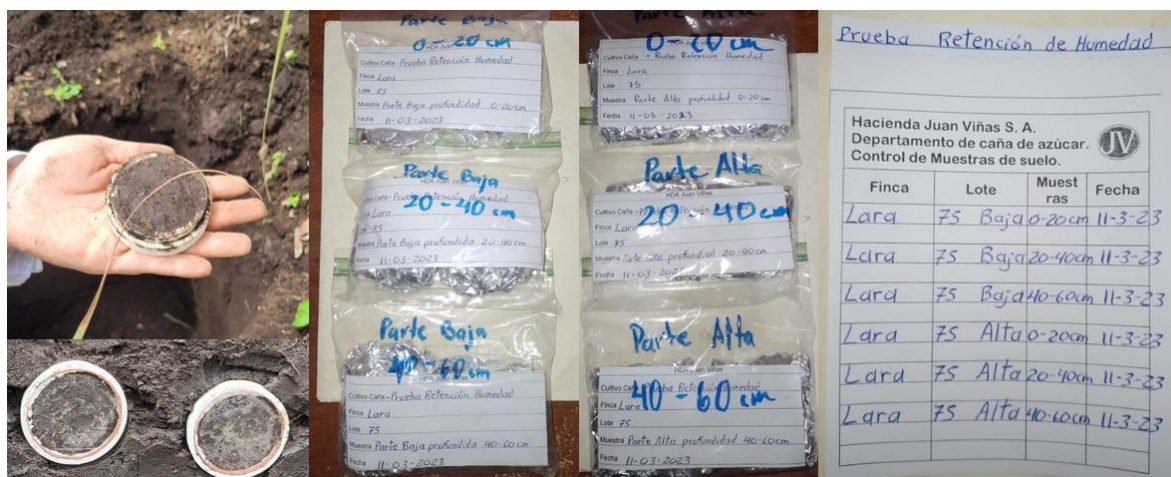 Parte Baja
0-20 cm
Cultivo Caña - Prueba Retención Humedad
Finca Lara
Lote 75
Muestra Parte Baja profundidad 0-20cm
Fecha 11-03-2023
Parte Baja
20-40 cm
Caña - Prueba Retención Humedad
Lara
75
Muestra Parte Baja profundida 20-40cm
11-03-2023
Parte Baja
40-60cm
HDA Juan Viñas
Cultivo Caña - Prueba Retención Humedad
Finca Lara
Lote 75
Muestra Parte Baja profundida 40-60cm
Fecha 11-03-2023
Parte Alta
0-20 cm
Cultivo Caña - Prueba Retención Humedad
Finca Lara
Lote 75
Muestra Parte Alta profundidad 0-20cm
Fecha 11-03-2023
Parte Alta
HDA Juan Viñas
20-40 cm
Cultivo Caña
Finca Lara
Lote 75
Muestra Parte Alta profundidad 20-40cm
Fecha 11-03-2023
Parte Alta
HDA Juan Viñas
40-60 cm
Cultivo Caña Prueba Retención Humedad
Finca Lara
Lote 75
Muestra Parte Alta profundidad 40-60cm
Fecha 11-03-2023
Prueba Retención de Humedad
Hacienda Juan Viñas S. A.
Departamento de caña de azúcar.
Control de Muestras de suelo.
JV
Finca Lote Muest ras Fecha
Lara 75 Baja 0-20cm 11-3-23
Lara 75 Baja 20-40cm 11-3-23
Lara 75 Baja 40-60cm 11-3-23
Lara 75 Alta 0-20cm 11-3-23
Lara 75 Alta 20-40cm 11-3-23
Lara 75 Alta 40-60cm 11-3-23